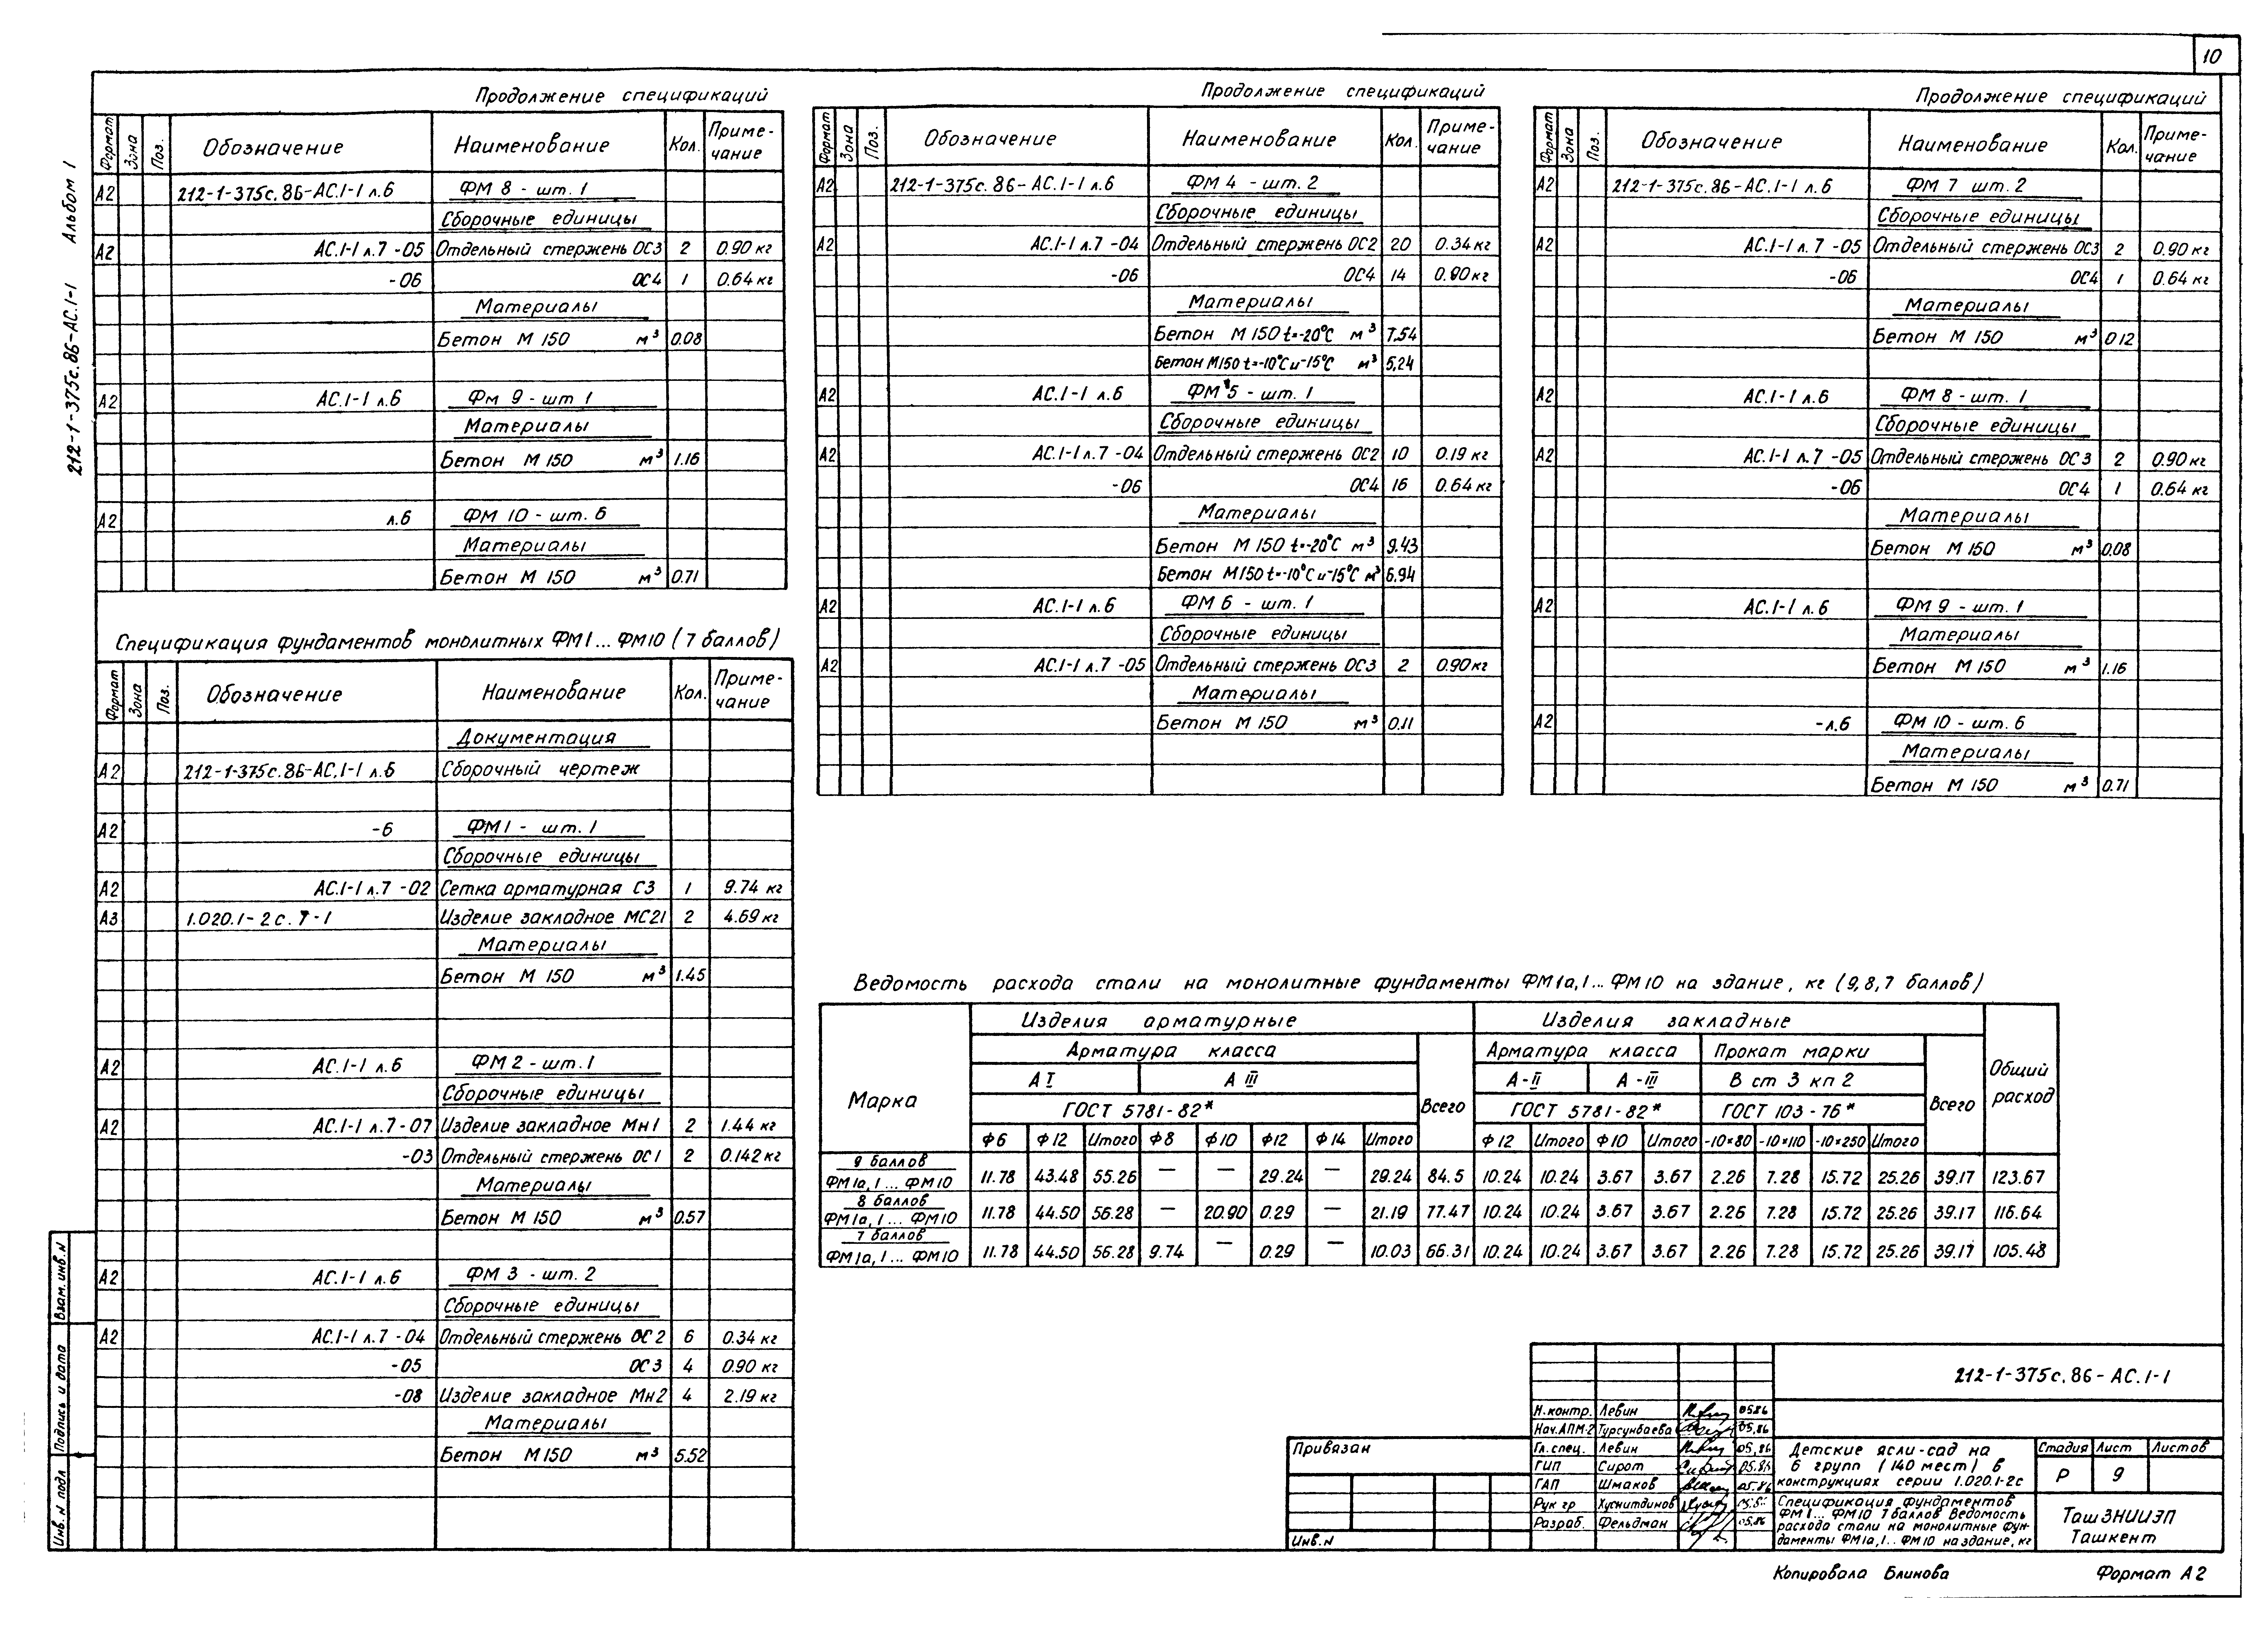 10
212-1-375с.86-АС.1-1 Альбом 1
Продолжение спецификаций
Формат Зона Поз. Обозначение Наименование Кол. Приме-чание
А2 212-1-375с.86-АС.1-1 л.6 ФМ 8 - шт. 1
Сборочные единицы
А2 АС.1-1 л.7 -05 Отдельный стержень ОС3 2 0.90 кг
-06 ОС4 1 0.64 кг
Материалы
Бетон М 150 м³ 0.08
А2 АС.1-1 л.6 Фм 9 - шт 1
Материалы
Бетон М 150 м³ 1.16
А2 л.6 ФМ 10 - шт. 6
Материалы
Бетон М 150 м³ 0.71
Спецификация фундаментов монолитных ФМ1... ФМ10 (7 баллов)
Формат Зона Поз. Обозначение Наименование Кол. Приме-чание
Документация
А2 212-1-375с.86-АС.1-1 л.6 Сборочный чертеж
А2 -6 ФМ1 - шт. 1
Сборочные единицы
А2 АС.1-1 л.7 -02 Сетка арматурная С3 1 9.74 кг
А3 1.020.1-2с. 7-1 Изделие закладное МС21 2 4.69 кг
Материалы
Бетон М 150 м³ 1.45
А2 АС.1-1 л.6 ФМ 2 - шт. 1
Сборочные единицы
А2 АС.1-1 л.7-07 Изделие закладное Мн1 2 1.44 кг
-03 Отдельный стержень ОС1 2 0.142 кг
Материалы
Бетон М 150 м³ 0.57
А2 АС.1-1 л.6 ФМ 3 - шт. 2
Сборочные единицы
А2 АС.1-1 л.7 -04 Отдельный стержень ОС2 6 0.34 кг
-05 ОС3 4 0.90 кг
-08 Изделие закладное Мн2 4 2.19 кг
Материалы
Бетон М150 м³ 5.52
Продолжение спецификаций
Формат Зона Поз. Обозначение Наименование Кол. Приме-чание
А2 212-1-375с.86-АС.1-1 л.6 ФМ 4 - шт. 2
Сборочные единицы
А2 АС.1-1 л.7 -04 Отдельный стержень ОС2 20 0.34 кг
-06 ОС4 14 0.90 кг
Материалы
Бетон М 150 t=-20°С м³ 7.54
Бетон М150 t=-10°С и -15°С м³ 5,24
А2 АС.1-1 л.6 ФМ 5 - шт. 1
Сборочные единицы
А2 АС.1-1 л.7 -04 Отдельный стержень ОС2 10 0.19 кг
-06 ОС4 16 0.64 кг
Материалы
Бетон М 150 t=-20°С м³ 9.43
Бетон М150 t=-10°С и -15°С м³ 6.94
А2 АС.1-1 л.6 ФМ 6 - шт. 1
Сборочные единицы
А2 АС.1-1 л.7 -05 Отдельный стержень ОС3 2 0.90 кг
Материалы
Бетон М 150 м³ 0.11
Продолжение спецификаций
Формат Зона Поз. Обозначение Наименование Кол. Приме-чание
А2 212-1-375с.86-АС.1-1 л.6 ФМ 7 шт. 2
Сборочные единицы
А2 АС.1-1 л.7 -05 Отдельный стержень ОС3 2 0.90 кг
-06 ОС4 1 0.64 кг
Материалы
Бетон М 150 м³ 0.12
А2 АС.1-1 л.6 ФМ 8 - шт. 1
Сборочные единицы
А2 АС.1-1 л.7 -05 Отдельный стержень ОС3 2 0.90 кг
-06 ОС4 1 0.64 кг
Материалы
Бетон М 150 м³ 0.08
А2 АС.1-1 л.6 ФМ 9 - шт. 1
Материалы
Бетон М 150 м³ 1.16
А2 -л.6 ФМ 10 - шт. 6
Материалы
Бетон М 150 м³ 0.71
Ведомость расхода стали на монолитные фундаменты ФМ1а,1... ФМ10 на здание, кг (9,8,7 баллов)
Марка Изделия арматурные Изделия закладные Общий расход
Арматура класса Всего Арматура класса Прокат марки Всего
А I А III А-II А-III В ст 3 кп 2
ГОСТ 5781-82* ГОСТ 5781-82* ГОСТ 103-76*
Ф6 Ф12 Итого Ф8 Ф10 Ф12 Ф14 Итого Ф12 Итого Ф10 Итого -10×80 -10×110 -10×250 Итого
9 баллов
ФМ1а,1... ФМ10 11.78 43.48 55.26 — — 29.24 — 29.24 84.5 10.24 10.24 3.67 3.67 2.26 7.28 15.72 25.26 39.17 123.67
8 баллов
ФМ1а,1... ФМ10 11.78 44.50 56.28 — 20.90 0.29 — 21.19 77.47 10.24 10.24 3.67 3.67 2.26 7.28 15.72 25.26 39.17 116.64
7 баллов
ФМ1а,1... ФМ10 11.78 44.50 56.28 9.74 — 0.29 — 10.03 66.31 10.24 10.24 3.67 3.67 2.26 7.28 15.72 25.26 39.17 105.48
Инв. N подл Подпись и дата Взам. инв. N
Привязан
Инв. N
212-1-375с.86-АС.1-1
Н.контр. Левин 05.86
Нач.АПМ-2 Турсунбаева 05.86
Гл.спец. Левин 05.86
ГИП Сирот 05.86
ГАП Шмаков 05.86
Рук гр Хуснитдинов 05.86
Разраб. Фельдман 05.86
Детские ясли-сад на
6 групп (140 мест) в
конструкциях серии 1.020.1-2с
Стадия Лист Листов
Р 9
Спецификация фундаментов
ФМ1... ФМ10 7 баллов Ведомость
расхода стали на монолитные фун-
даменты ФМ1а,1.. ФМ10 на здание, кг
ТашЗНИИЭП
Ташкент
Копировала Блинова Формат А2